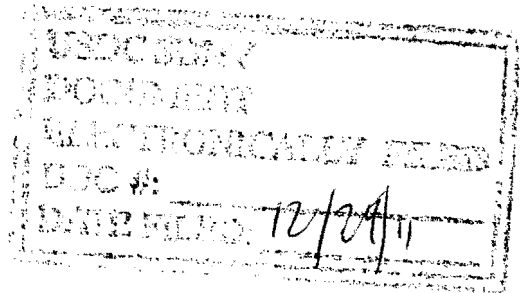 USDC SDNY
DOCUMENT
ELECTRONICALLY FILED
DOC #:
DATE FILED: 12/29/11